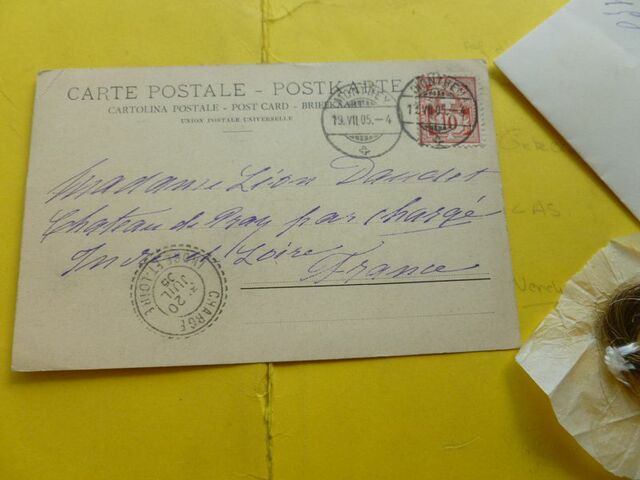 CARTE POSTALE - POSTKARTE
CARTOLINA POSTALE - POST CARD - BRIEFKAART
UNION POSTALE UNIVERSELLE
19.VII.05.-4
19.VII.05.-4
10
Madame Léon Daudet
Chateau de Pray par chargé
Indre et Loire
France
CHARGÉ
20
JUIL
05
INDRE-ET-LOIRE